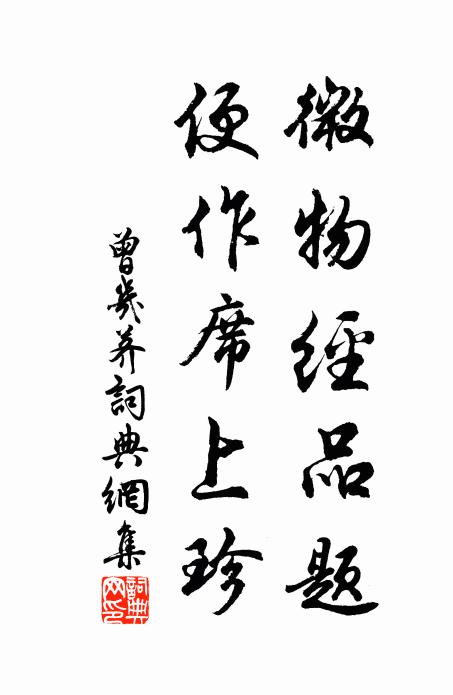 微物經品題
便作席上珍
曾幾并詞典網集
詞典網印